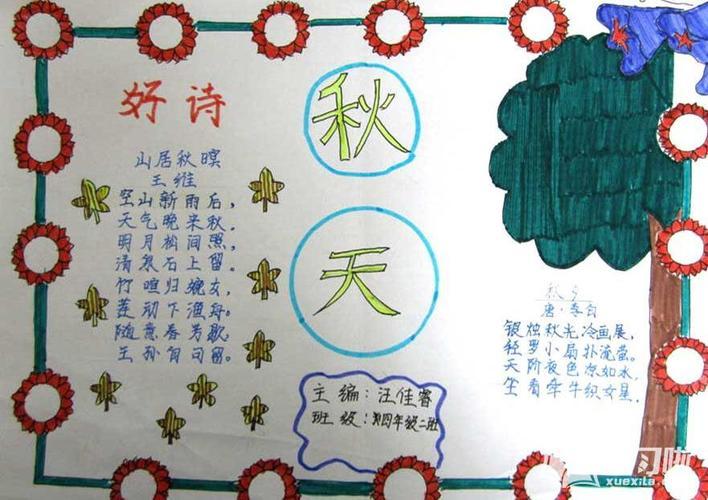 好诗
山居秋暝
王维
空山新雨后，
天气晚来秋。
明月松间照，
清泉石上留。
竹喧归晚女，
莲动下渔舟。
随意春芳歇，
王孙自可留。
秋
天
主编：汪佳睿
班级：四年级二班
秋夕
唐·李白
银烛秋光冷画展，
轻罗小扇扑流萤。
天阶夜色凉如水，
坐看牵牛织女星。
习啦
xuexila.com